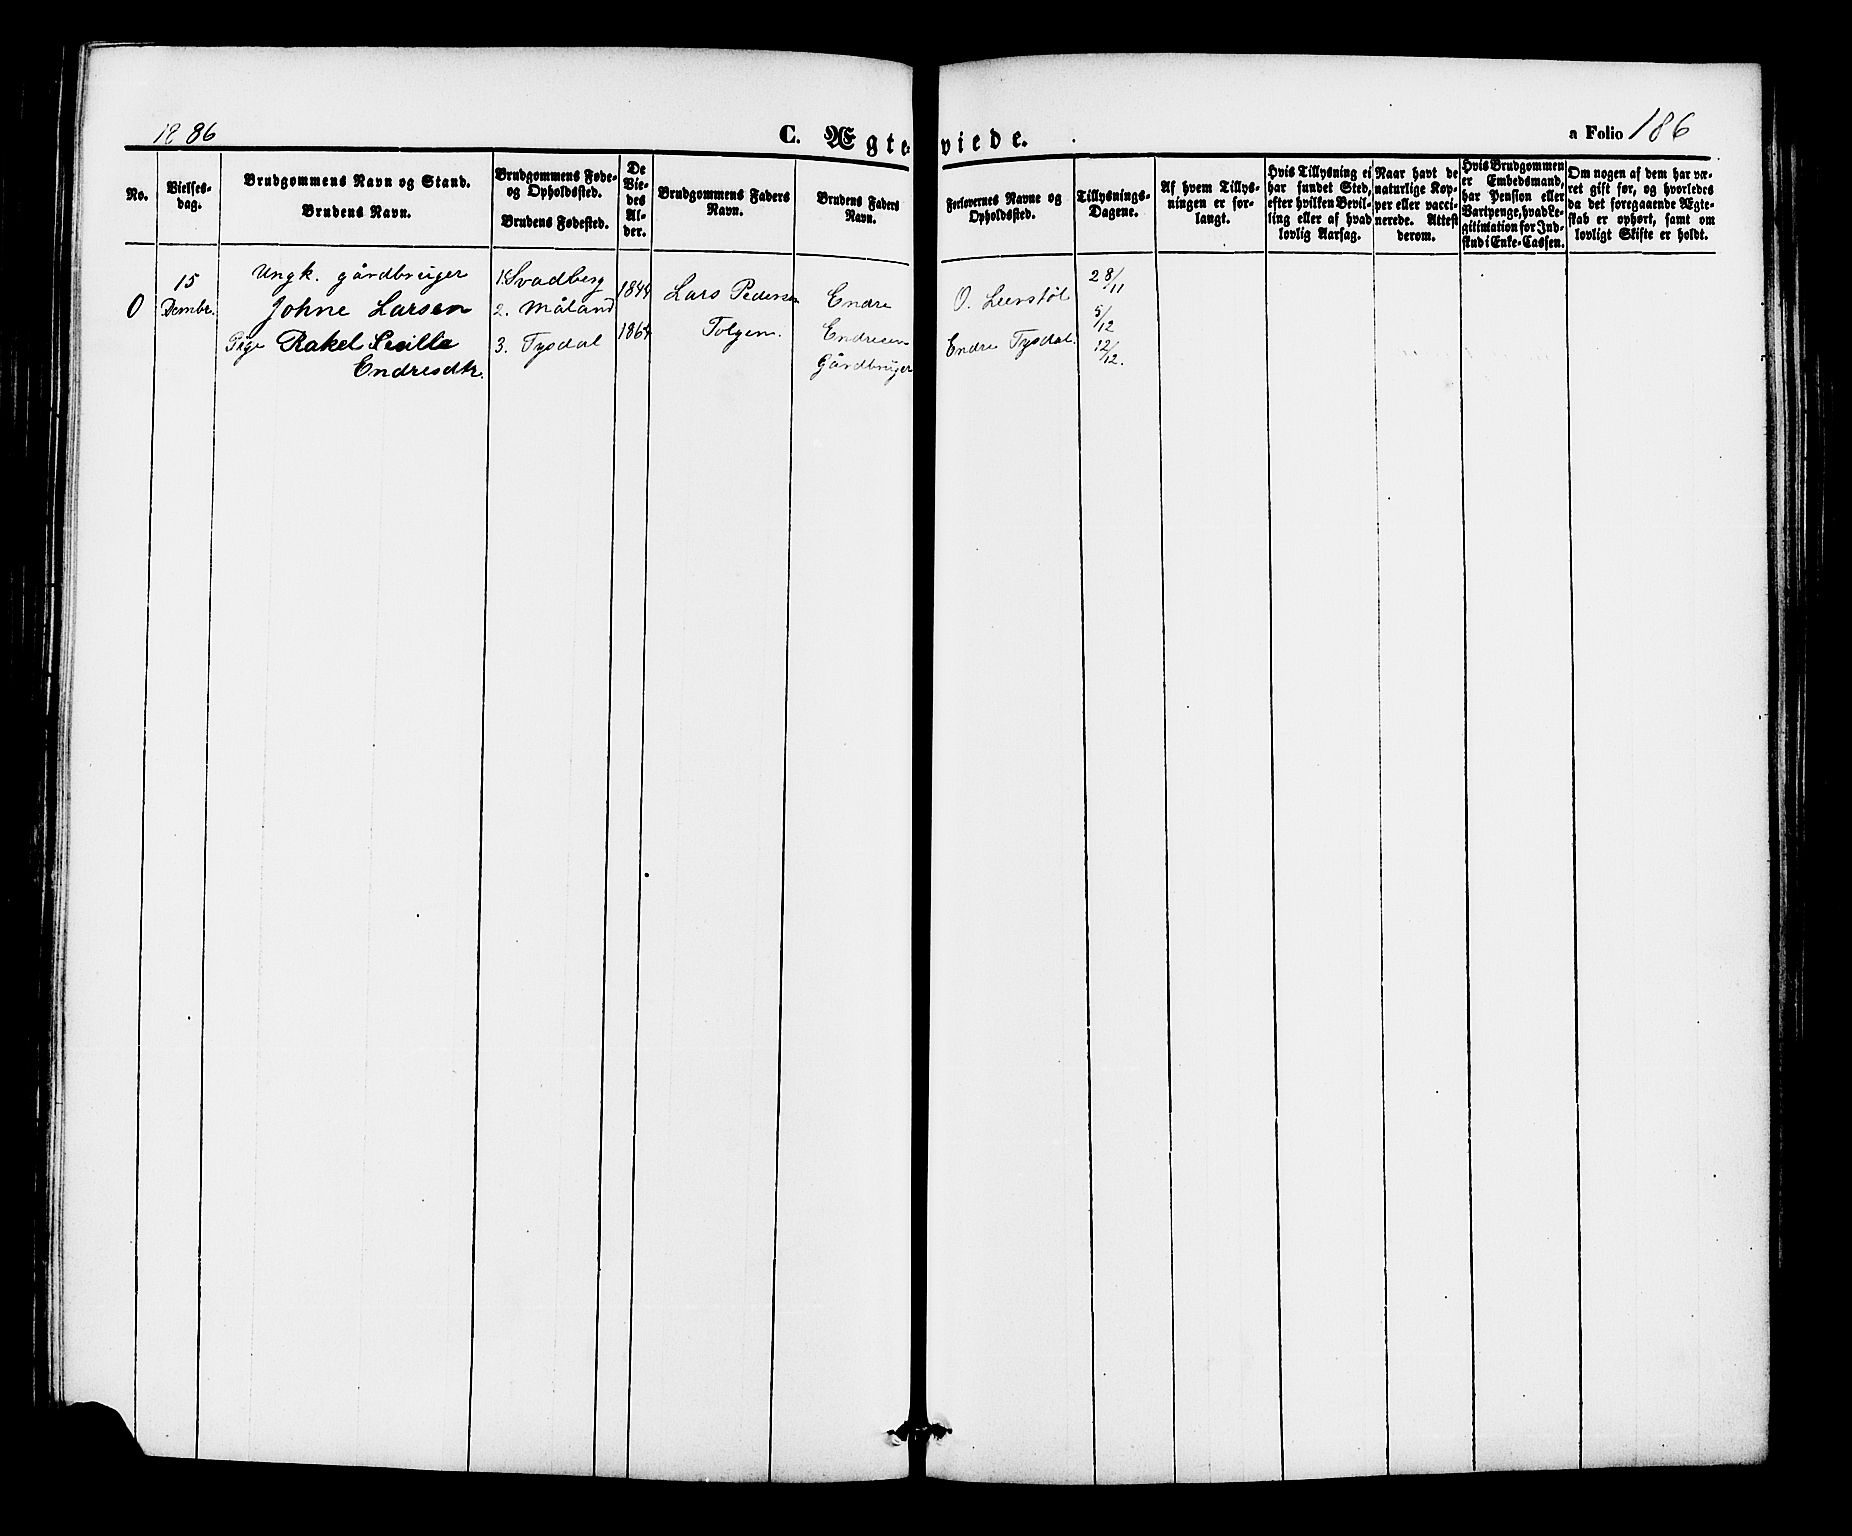 1886
C. Ægteviede.
a Folio 186
No.
Vielses-
dag.
Brudgommens Navn og Stand.
Brudens Navn.
Brudgommens Føde-
og Opholdssted.
Brudens Fødested.
De
Vie-
des
Al-
der.
Brudgommens Faders
Navn.
Brudens Faders
Navn.
Forlovernes Navne og
Opholdssted.
Tillysnings-
Dagene.
Af hvem Tillys-
ningen er for-
langt.
Hvis Tillysning ei
har fundet Sted,
efter hvilken Bevil-
ling eller af hvad
lovlig Aarsag.
Naar havt de
naturlige Kop-
per eller vacci-
nerede. Attest
derom.
Hvis Brudgommen
er Embedsmand,
har Pension eller
Vartpenge, hvad Le-
gitimation for Ind-
skud i Enke-Cassen.
Om nogen af dem har væ-
ret gift før, og hvorledes
da det foregaaende Ægte-
skab er ophørt, samt om
lovligt Skifte er holdt.
0
15
Dembr.
Ungk. gårdbruger
Johne Larsen
Pige Rakel Sesilla
Endresdtr.
1. Svadberg
2. Måland
3. Tysdal
1844
1864
Lars Pedersen
Tolgen.
Endre
Endresen
Gårdbruger
O. Leerstøl
Endre Tysdal.
28/11
5/12
12/12.